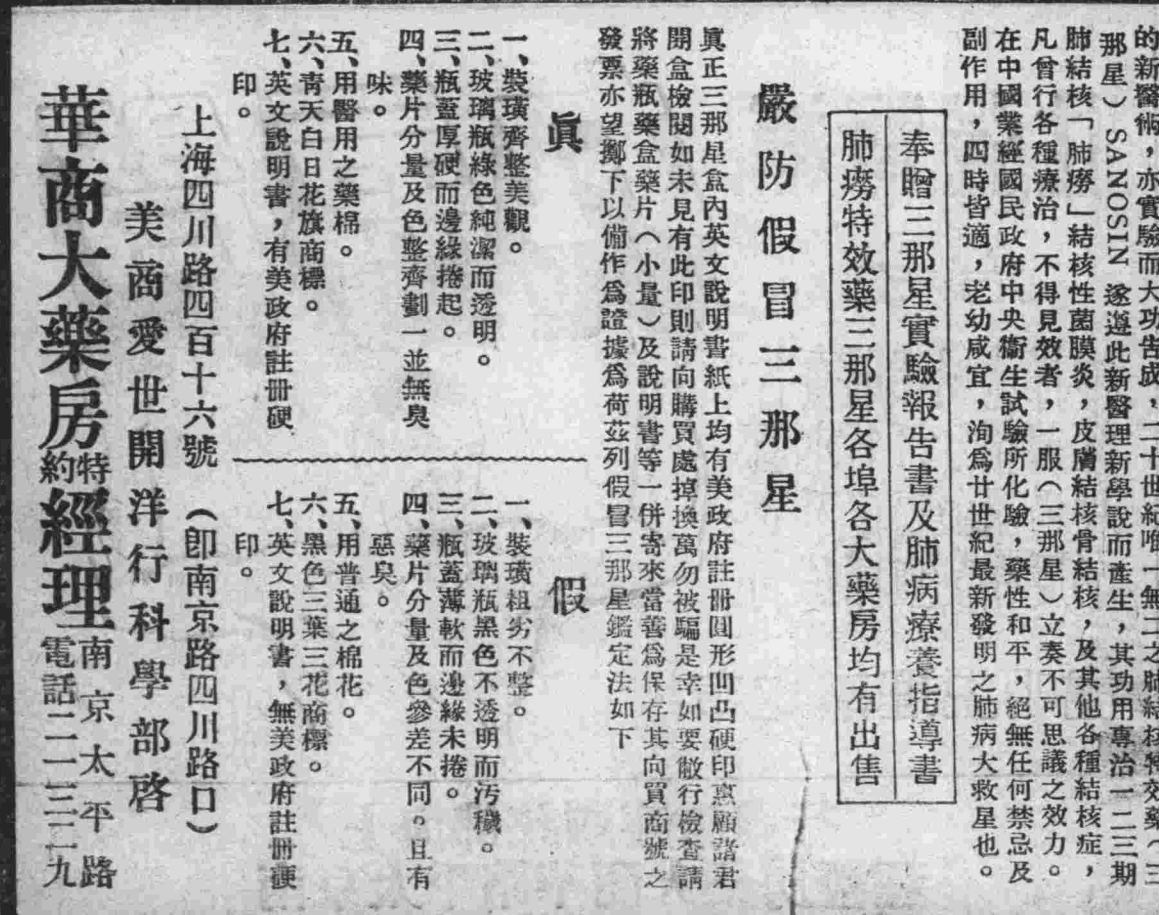 的新醫術，亦實驗而大功告成，二十世紀唯一無二之肺結核特效藥（三
那星）SANOSIN 遂遵此新醫理新學說而產生，其功用專治一二三期
肺結核「肺癆」結核性菌膜炎，皮膚結核骨結核，及其他各種結核症，
凡曾行各種療治，不得見效者，一服（三那星）立奏不可思議之效力。
在中國業經國民政府中央衞生試驗所化驗，藥性和平，絕無任何禁忌及
副作用，四時皆適，老幼咸宜，洵爲廿世紀最新發明之肺病大救星也。
奉贈三那星實驗報告書及肺病療養指導書
肺癆特效藥三那星各埠各大藥房均有出售
嚴防假冒三那星
眞正三那星盒內英文說明書紙上均有美政府註册圓形凹凸硬印惠顧諸君
開盒檢閱如未見有此印則請向購買處掉換萬勿被騙是幸如要敝行檢查請
將藥瓶藥盒藥片（小量）及說明書等一併寄來當善爲保存其向買商號之
發票亦望擲下以備作爲證據爲荷茲列假冒三那星鑑定法如下
眞
一、裝璜齊整美觀。
二、玻璃瓶綠色純潔而透明。
三、瓶蓋厚硬而邊緣捲起。
四、藥片分量及色整齊劃一並無臭
味。
五、用醫用之藥棉。
六、青天白日花旗商標。
七、英文說明書，有美政府註册硬
印。
假
一、裝璜粗劣不整。
二、玻璃瓶黑色不透明而汚穢。
三、瓶蓋薄軟而邊緣未捲。
四、藥片分量及色參差不同。且有
惡臭。
五、用普通之棉花。
六、黑色三葉三花商標。
七、英文說明書，無美政府註册硬
印。
上海四川路四百十六號（卽南京路四川路口）
美商愛世開洋行科學部啓
華商大藥房特約經理南京太平路
電話二一三二九